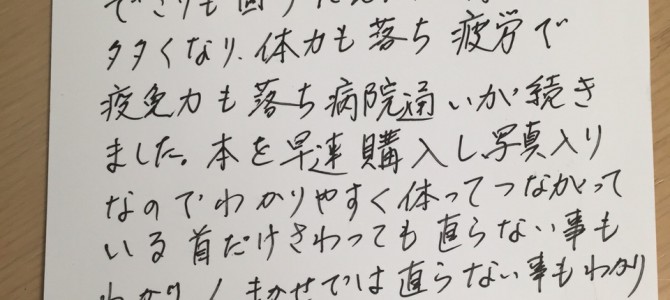 多くなり、体力も落ち疲労で
疫免力も落ち病院通いが続き
ました。本を早速購入し写真入り
なのでわかりやすく体ってつながって
いる首だけさわっても直らない事も
まかせでは直らない事もわかり